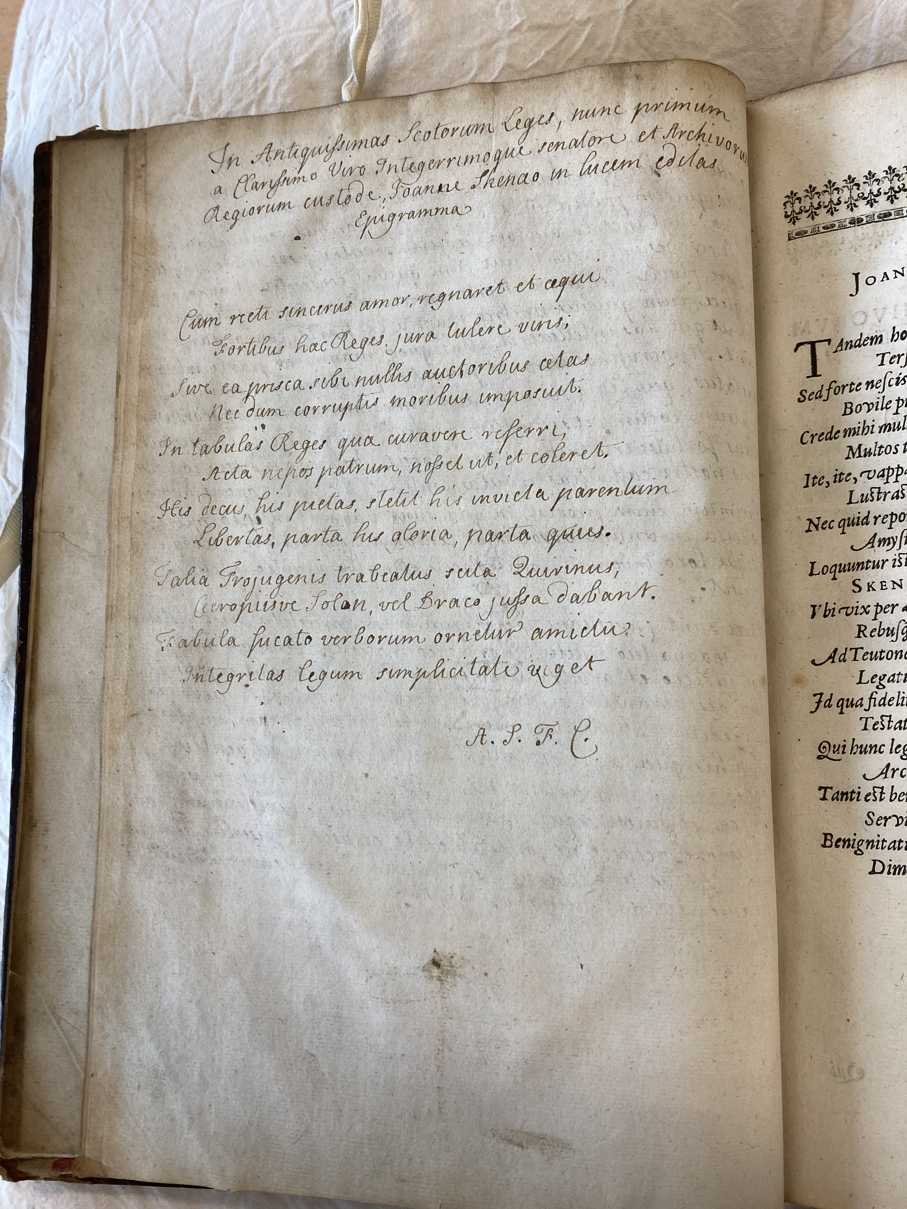 In Antiquissimas Scotorum Leges, nunc primum
a Clarissimo Viro Integerrimoque senatore et Archivorum
Regiorum custode, Joanne Skenæo in lucem editas
Epigramma
Cum recti sincerus amor, regnaret et æqui
Fortibus hac Reges, jura tulere viris;
Sive ea prisca sibi nullis auctoribus ætas
Nec dum corruptis moribus imposuit.
In tabulas Reges qua curavere referri,
Acta nepos patrum, nosset ut, et coleret.
His decus, his pietas, stetit his invicta parentum
Libertas, parta his gloria, parta quies.
Talia Trojugenis trabeatus scita Quirinus,
Cecropiisve Solon, vel Draco jussa dabant.
Fabula fucato verborum ornetur amictu:
Integritas legum simplicitate viget
A. S. F. C.
JOAN
TAndem ho
Ters
Sed forte nescis
Bovile pr
Crede mihi mul
Multos t
Ite, ite, vappa
Lustras
Nec quid repo
Amysi
Loquuntur isti
SKEN
Vbi vix per
Rebusq
Ad Teutona
Legati
Id qua fidelit
Testat
Qui hunc leg
Arc
Tanti est ben
Servi
Benignitati
Dim